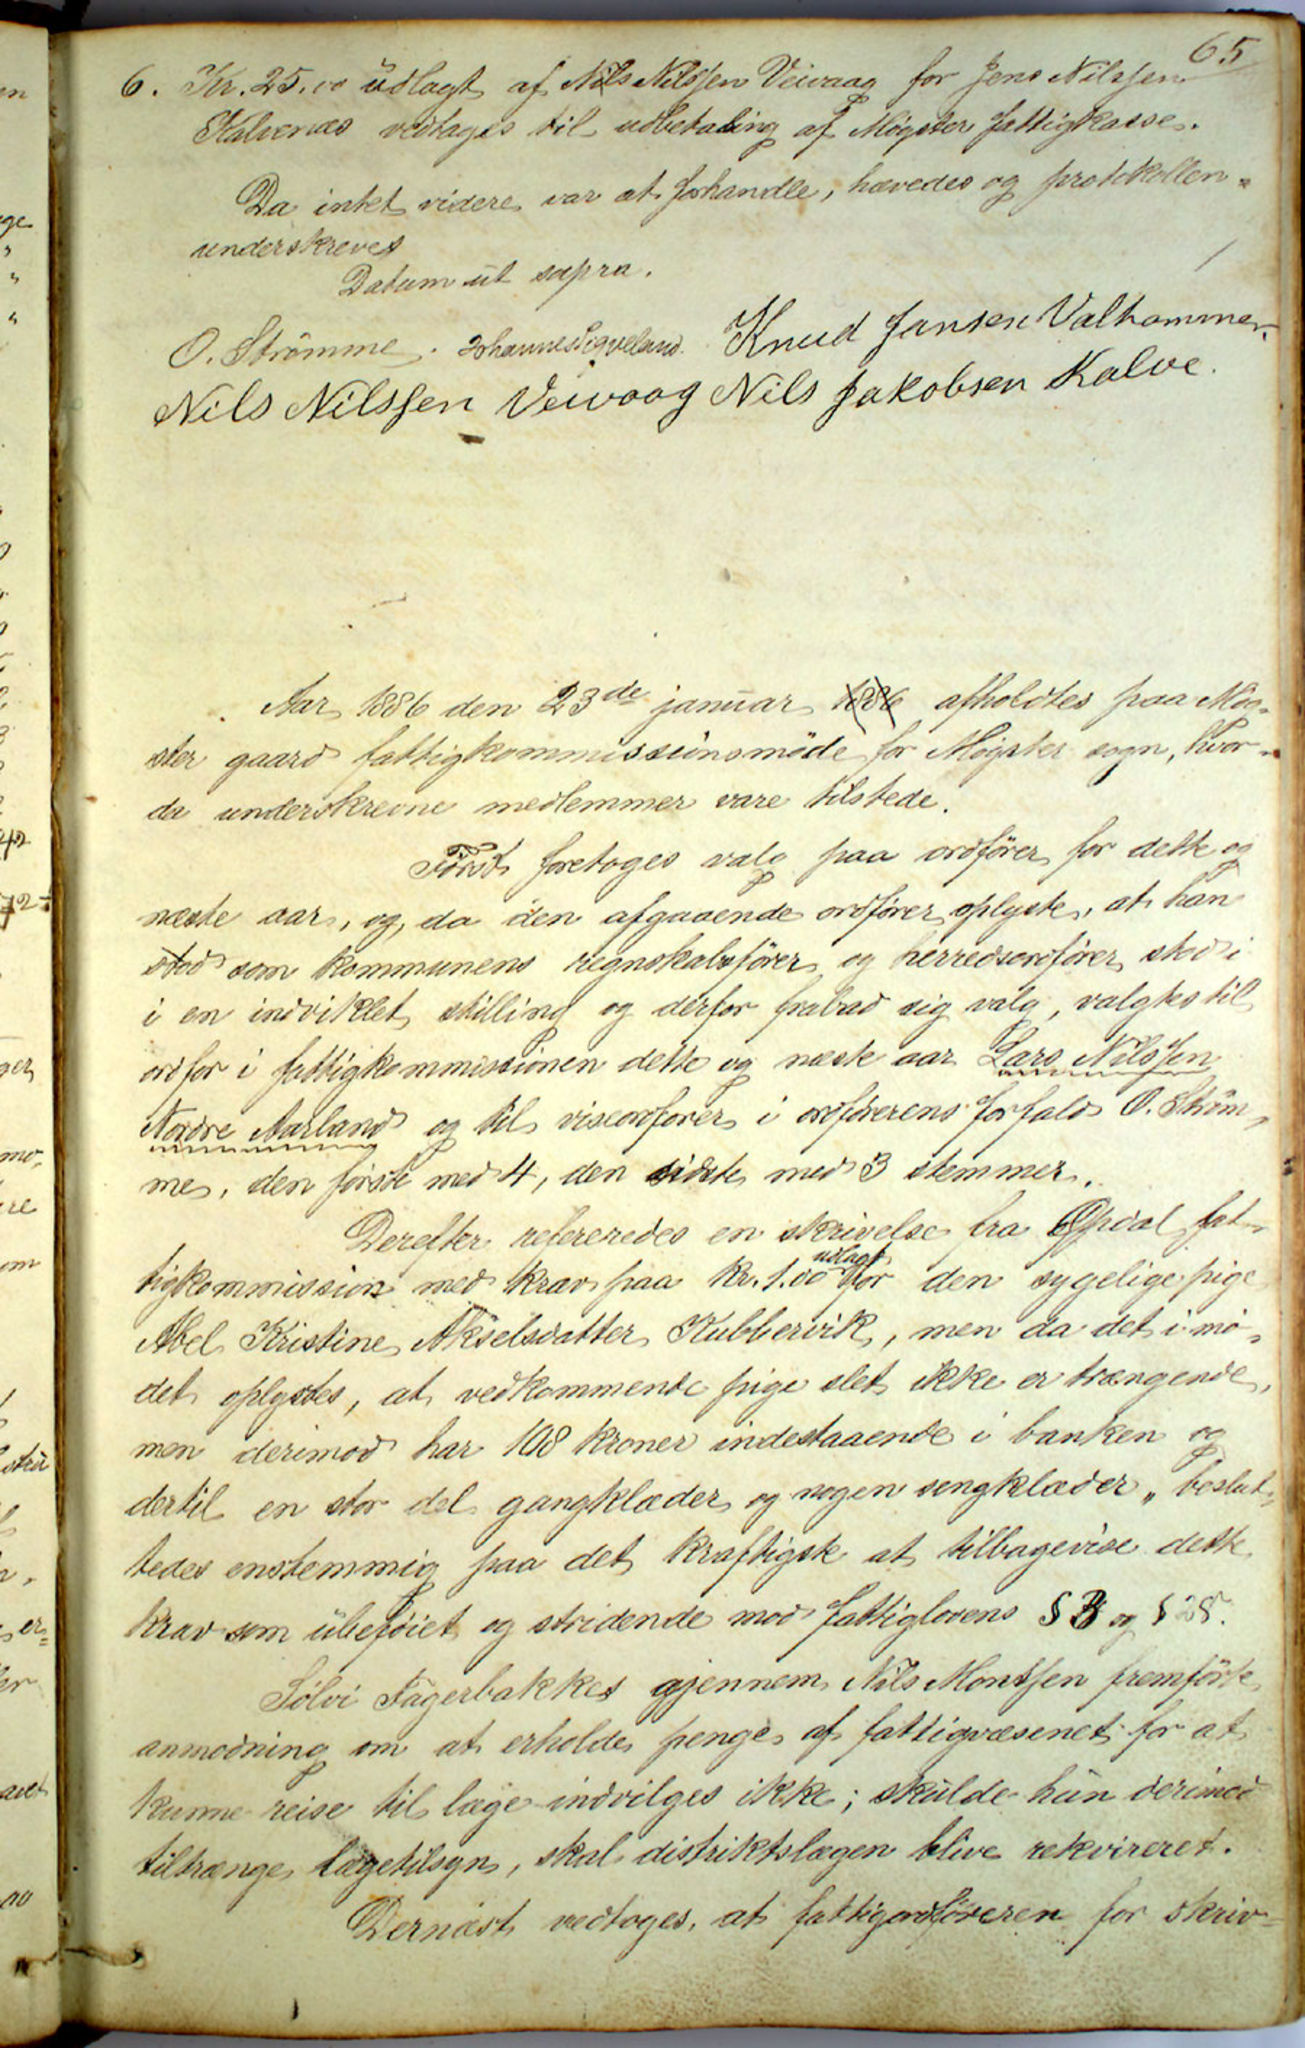 65
6. Kr. 25.00 udlagt af Nils Nilssen Veivaag for Jens Nilssen
Kalvenæs vedtages til udbetaling af Møgster fattigkasse.
Da intet videre var at forhandle, hævedes og protokollen
underskreves
Datum ut supra.
O. Strømme. Johannes Sigveland. Knud Jansen Valhammer.
Nils Nilssen Veivaag Nils Jakobsen Kalve.
Aar 1886 den 23de januar 1886 afholdtes paa Møg-
ster gaard fattigkommissionsmøde for Møgster sogn, hvor-
da underskrevne medlemmer vare tilstede.
Først foretoges valg paa ordfører for dette og
næste aar, og, da den afgaaende ordfører oplyste, at han
stod som kommunens regnskabsfører og herredsordfører stod i
i en indviklet stilling og derfor frabad sig valg, valgtes til
ordfør i fattigkommissionen dette og næste aar Lars Nilssen
Nordre Aarland og til viseordfører i ordførerens forfald O. Strøm-
me, den første med 4, den sidste med 3 stemmer.
Derefter refereredes en skrivelse fra fat-
tigkommission med krav paa kr. 1.00 udlagt for den sygelige pige
Abel Kristine Akselsdatter Kubbervik, men da det i mø-
det oplystes, at vedkommende pige slet ikke er trængende,
men derimod har 108 kroner indestaaende i banken og
dertil en stor del gangklæder og nogen sengklæder, beslut-
tedes enstemmig paa det kraftigste at tilbagevise dette
krav som ubeføiet og stridende mod fattiglovens § 3 og § 28.
Sølvi Fagerbakkes gjennem Nils Montsen fremførte
anmodning om at erholde penge af fattigvæsenet for at
kunne reise til læge indvilges ikke; skulde hun derimod
tiltrænge lægetilsyn, skal distriktslægen blive rekvireret.
Dernæst vedtoges, at fattigordføreren for skriv-